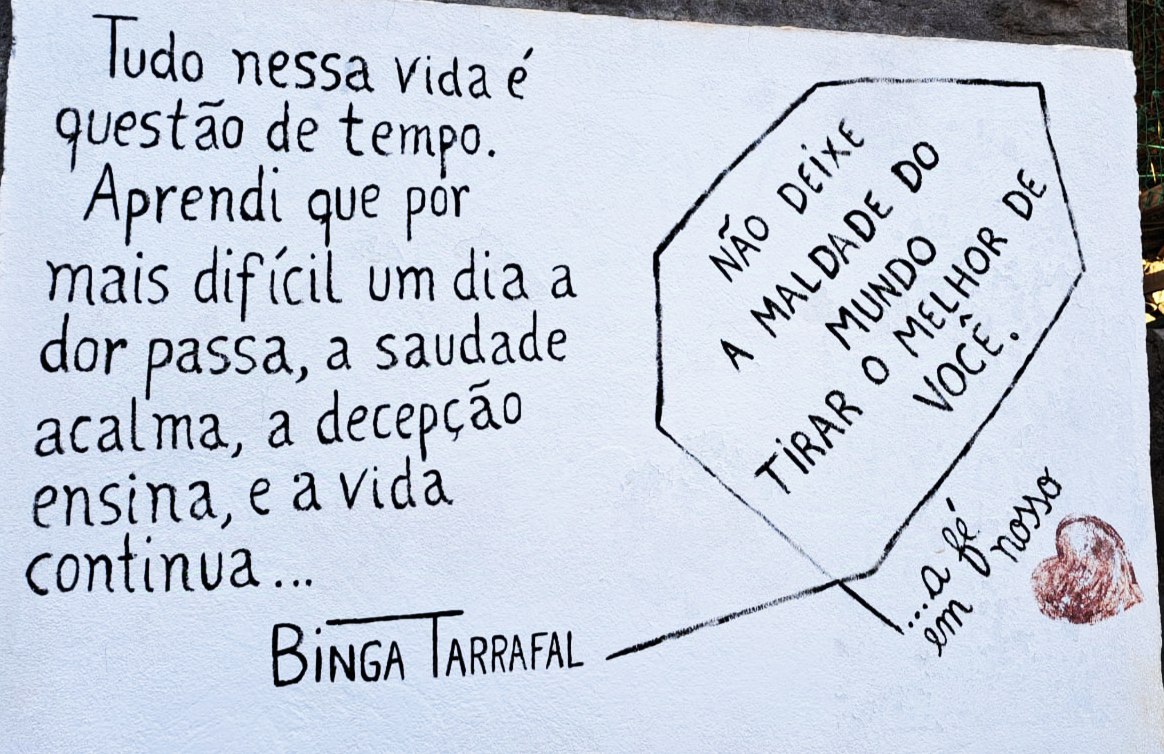 Tudo nessa vida é
questão de tempo.
Aprendi que por
mais difícil um dia a
dor passa, a saudade
acalma, a decepção
ensina, e a vida
continua...
BiNGA TARRAFAL
NÃO DEiXE
A MALDADE DO
MUNDO
TiRAR O MELHOR DE
VOCÊ.
...a fé
em nosso